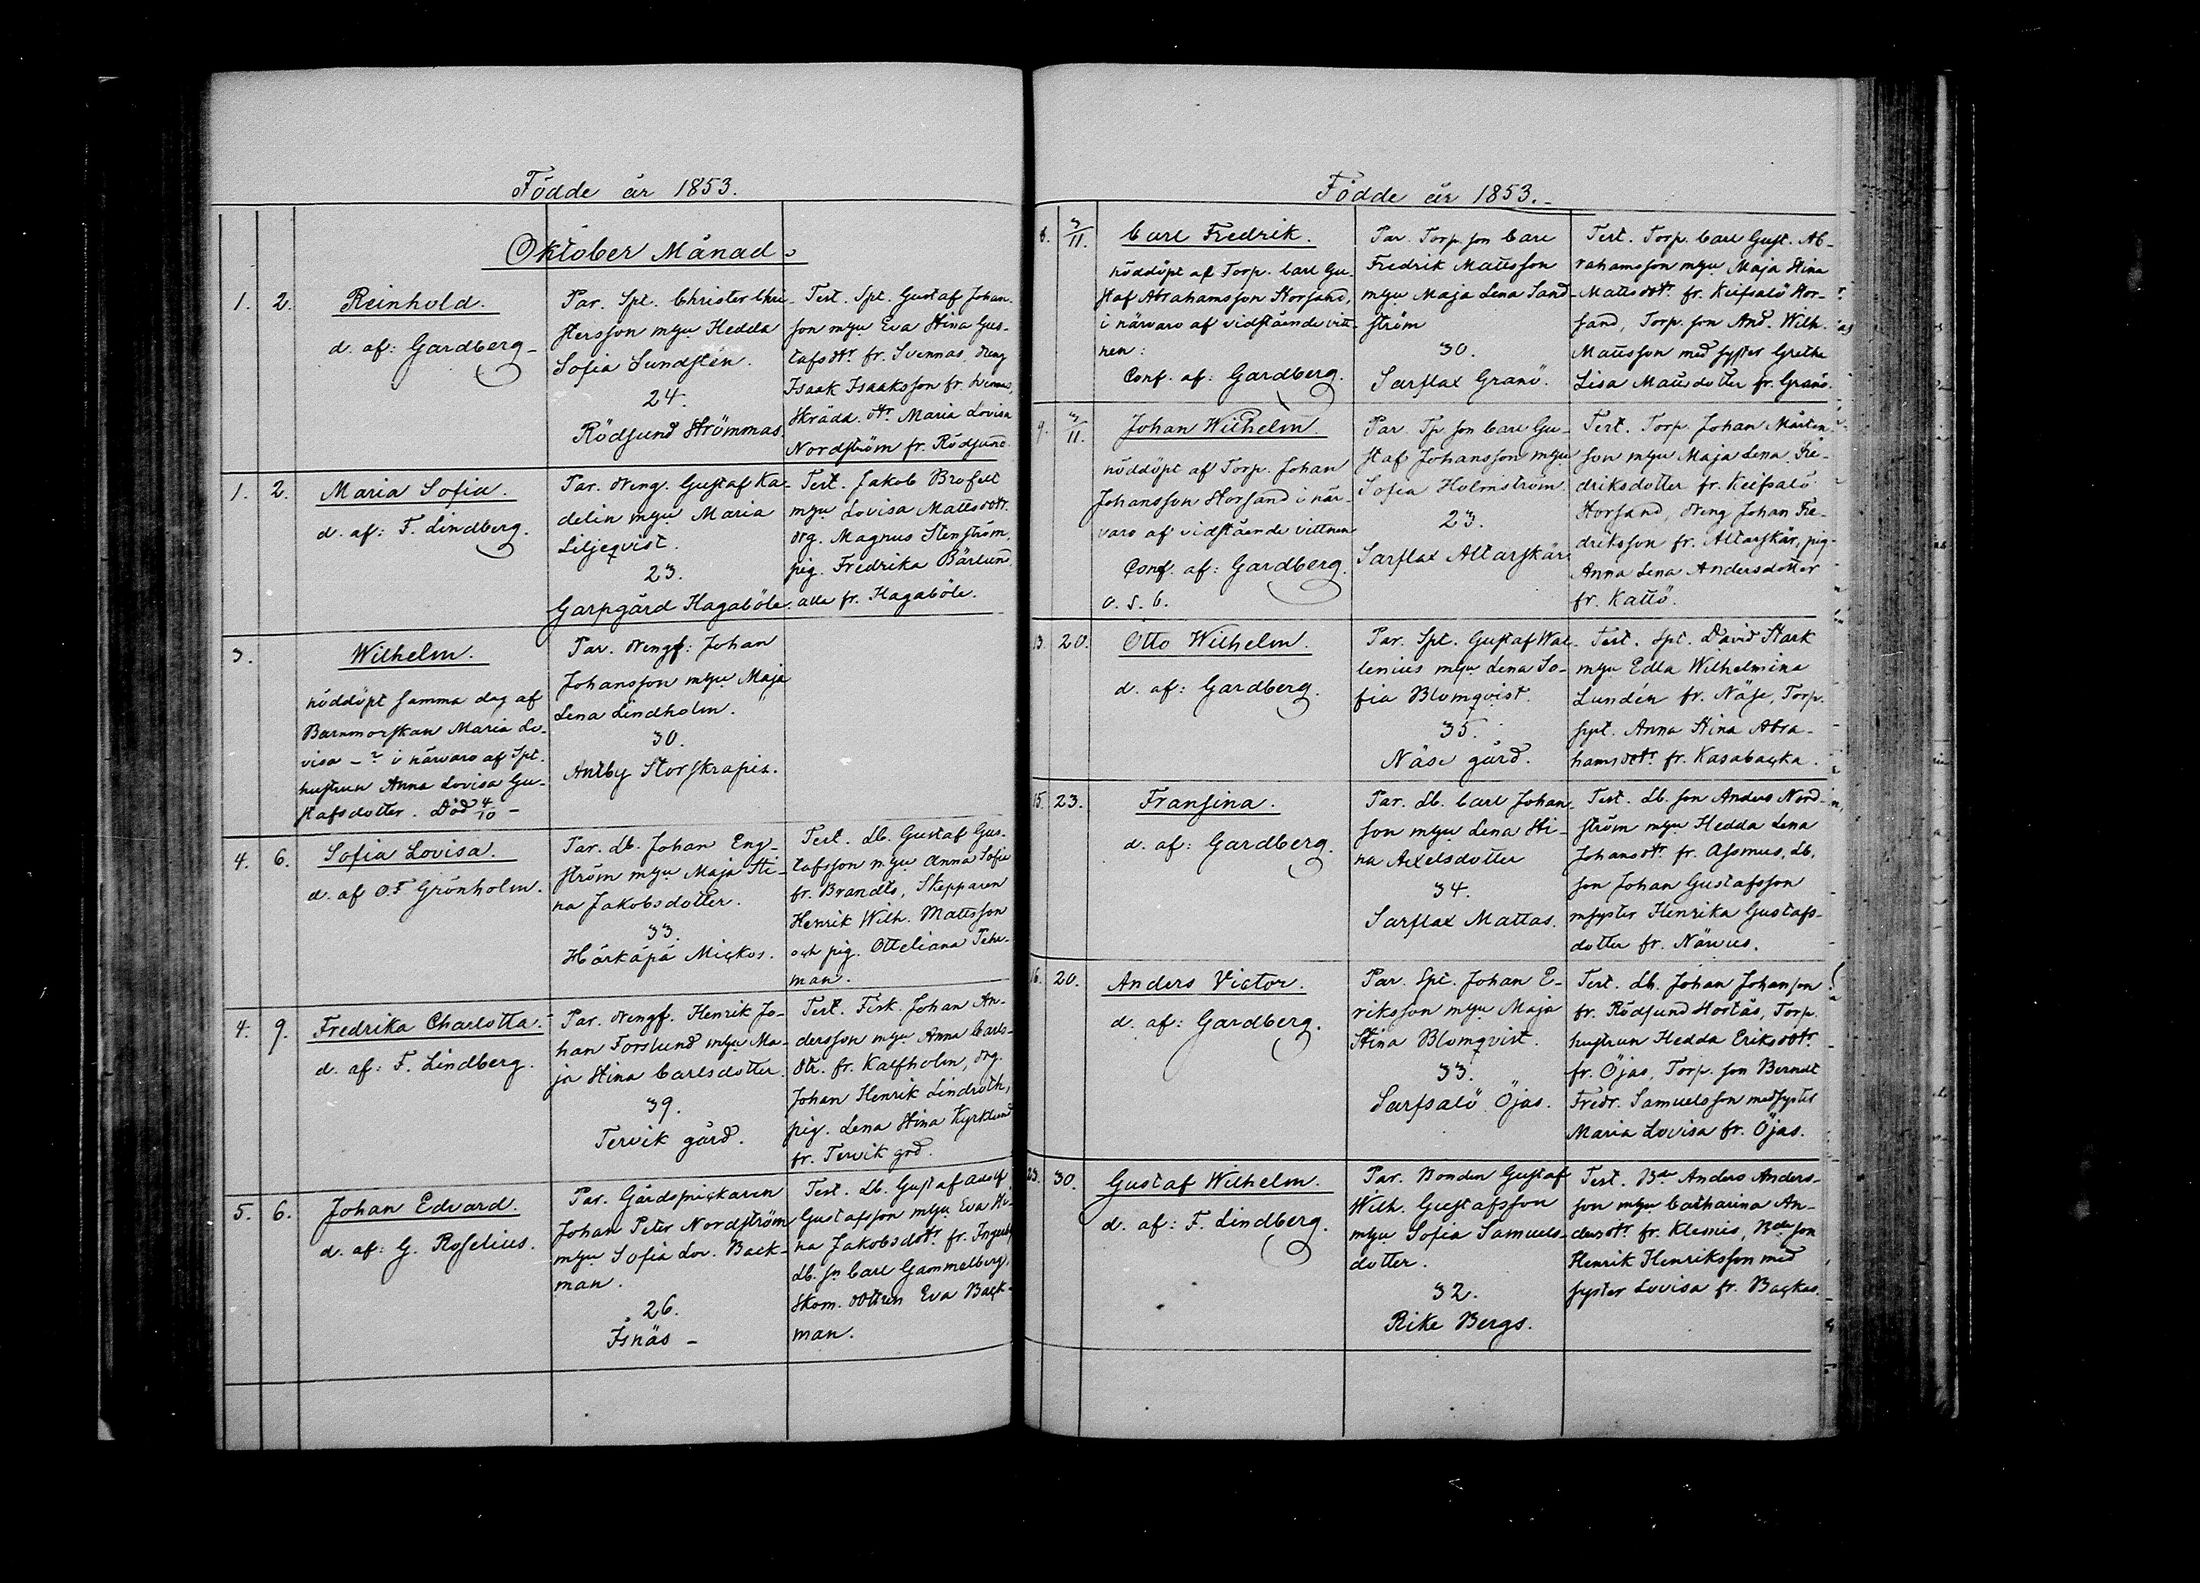 Födde år 1853.
Oktober Månad.
1. 2. Reinhold.
d. af: Gardberg
Par. Spt. Christer Chri-
stersson m hu Hedda
Sofia Sundstén.
24.
Rödsund Strömmas.
Test. Spt. Gustaf Johan-
son m hu Eva Stina Gus-
tafsdtr fr. Svennas, dreng
Isaak Isaaksson fr.
Skrädd. dtr Maria Lovisa
Nordström fr. Rödsund.
1. 2. Maria Sofia.
d. af: F. Lindberg.
Par. dreng. Gustaf Ka-
delin m hu Maria
Liljeqvist.
23.
Garpgård Hagaböle.
Test. Jakob Brofelt
m hu Lovisa Mattsdotr.
drg. Magnus Stenström,
pig. Fredrika Bärlund,
alla fr. Hagaböle.
3. Wilhelm.
nöddöpt samma dag af
Barnmorskan Maria Lo-
visa - ? i närvaro af Spt.
hustrun Anna Lovisa Gu-
stafsdotter. Död 4/10 -
Par. drengf: Johan
Johansson m hu Maja
Lena Lindholm.
30.
Antby Storskrapis.
4. 6. Sofia Lovisa.
d. af O.F Grönholm.
Par. Lb. Johan Eng-
ström m hu Maja Sti-
na Jakobsdotter.
33.
Härkäpä Mickos.
Test. Lb. Gustaf Gus-
tafsson m hu Anna Sofia
fr. Brandts, Skepparen
Henrik Wilh. Mattsson
och pig. Otteliana
man.
4. 9. Fredrika Charlotta.
d. af: F. Lindberg.
Par. drengf. Henrik Jo-
han Forslund m hu Ma-
ja Stina Carlsdotter.
39.
Tervik gård.
Test. Fisk. Johan An-
dersson m hu Anna Carls-
dtr. fr. Kalfholm, drg.
Johan Henrik Lindroth,
pig. Lena Stina Kyrklund
fr. Tervik grd.
5. 6. Johan Edvard.
d. af: G. Roselius.
Par. Gårdssnickaren
Johan Peter Nordström
m hu Sofia Lov. Back-
man.
26.
Isnäs -
Test. Lb. Gustaf Adolf
Gustafsson m hu Eva Sti-
na Jakobsdotr fr.
Lb. sn Carl Gammelberg,
Skom. dottren Eva Back-
man.
Födde år 1853.-
8. 3/11. Carl Fredrik.
nöddöpt af Torp. Carl Gu-
staf Abrahamsson Storsand,
i närvaro af vidstående vitt-
nen:
Conf. af: Gardberg.
Par. Torp. son Carl
Fredrik Mattsson
m hu Maja Lena Sand-
ström
30.
Sarflax Granö.
Test. Torp. Carl Gust. Ab-
rahamsson m hu Maja Stina
Mattsdotr fr. Keifsalö Stor-
sand, Torp. son And. Wilh.
Mattsson med syster Gretha
Lisa Mattsdotter fr. Granö.
9. 3/11. Johan Wilhelm
nöddöpt af Torp. Johan
Johansson Storsand i när-
varo af vidstående vittnen
Conf. af: Gardberg.
o. S. b.
Par. Tp son Carl Gu-
staf Johansson m hu
Sofia Holmström.
23.
Sarflax Altarskär.
Test. Torp. Johan Mårten-
son m hu Maja Lena Fre-
driksdotter fr. Keifsalö
Storsand, dreng Johan Fre-
driksson fr. Altarskär, pig-
Anna Lena Andersdotter
fr. Kattö.
13. 20. Otto Wilhelm.
d. af: Gardberg.
Par. Spt. Gustaf Wal-
lenius m hu Lena So-
fia Blomqvist.
35.
Näse gård.
Test. Spt. David Stark
m hu Edla Wilhelmina
Lundén fr. Näse, Torp.
hust. Anna Stina Abra-
hamsdotr fr. Kasabacka.
15. 23. Fransina.
d. af: Gardberg.
Par. Lb. Carl Johan-
son m hu Lena Sti-
na Axelsdotter
34.
Sarflax Mattas.
Test. Lb. son Anders Nord-
ström m hu Hedda Lena
Johansdtr. fr. Assmus, Lb.
son Johan Gustafsson
m syster Henrika Gustafs-
dotter fr. Närvus.
16. 20. Anders Victor.
d. af: Gardberg.
Par. Spt. Johan E-
riksson m hu Maja
Stina Blomqvist.
33.
Sarfsalö Öjas.
Test. Lb. Johan Johanson
fr. Rödsund Stortäs, Torp.
hustrun Hedda Eriksdotr
fr. Öjas, Torp. son Berndt
Fredr. Samuelsson med syster
Maria Lovisa fr. Öjas.
23. 30. Gustaf Wilhelm.
d. af: F. Lindberg.
Par. Bonden Gustaf
Wilh. Gustafsson
m hu Sofia Samuels-
dotter.
32.
Rike Bergs.
Test. Bdn Anders Anders-
son m hu Catharina An-
dersdtr. fr. Klemis, Bde son
Henrik Henriksson med
syster Lovisa fr. Backas.